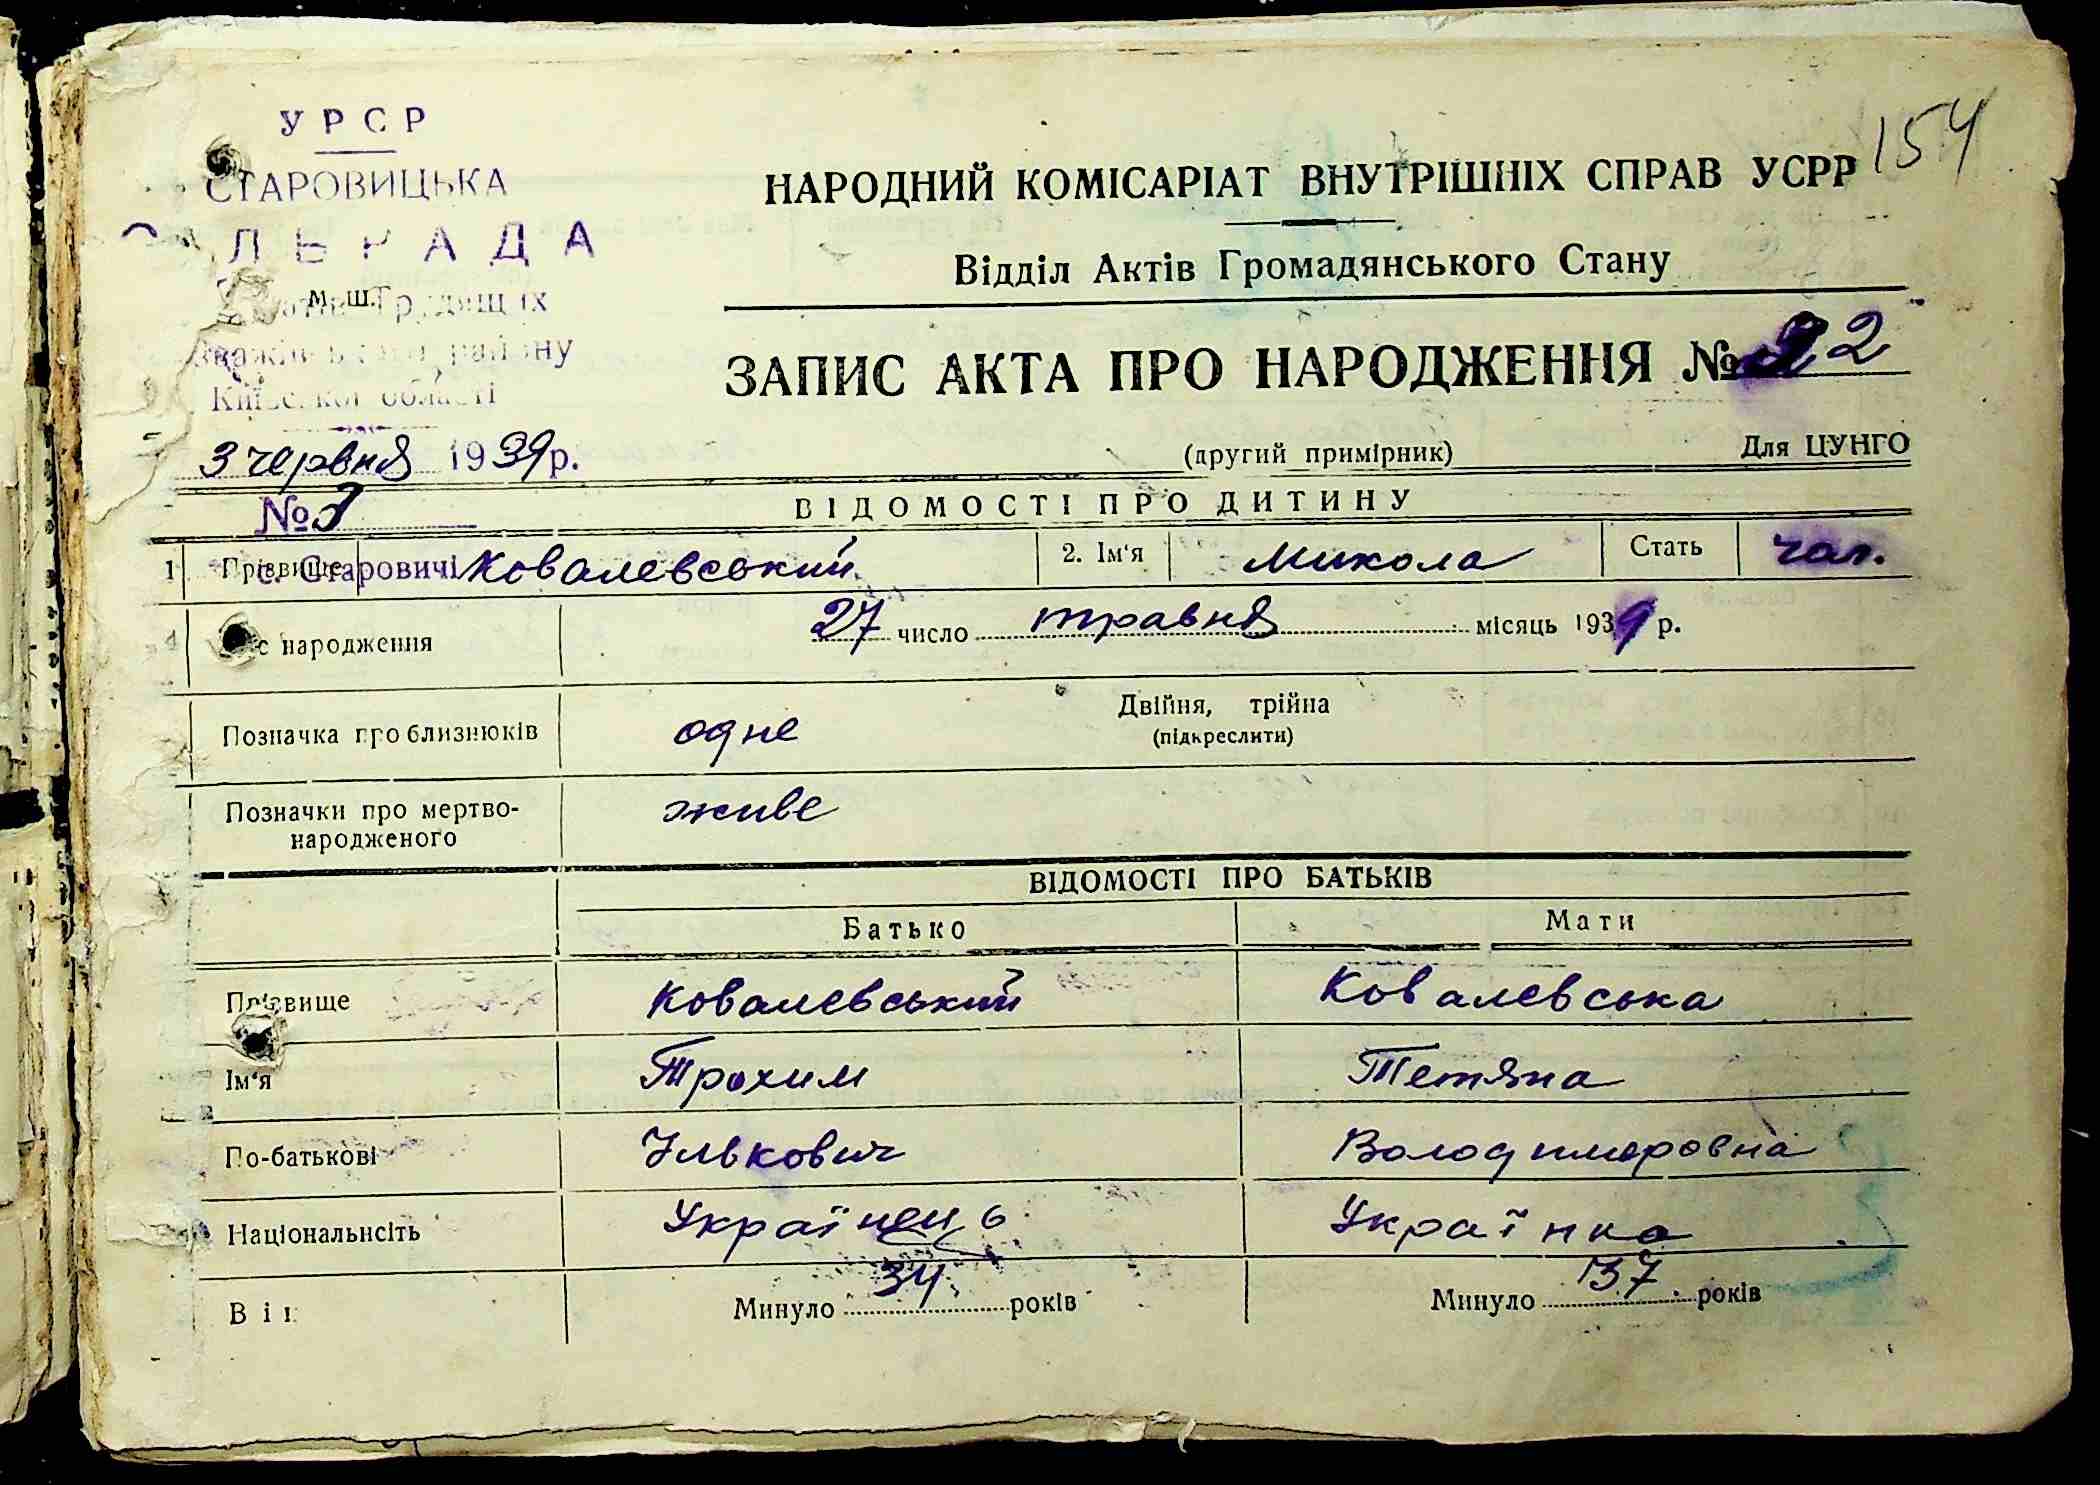 154
УРСР
СТАРОВИЦЬКА
ЛЬРАДА
Трудящих
району
області
3 червня 1939 р.
№
с. Старовичі
НАРОДНИЙ КОМІСАРІАТ ВНУТРІШНІХ СПРАВ УСРР
Відділ Актів Громадянського Стану
м. ш.
ЗАПИС АКТА ПРО НАРОДЖЕННЯ № 22
(другий примірник) Для ЦУНГО
ВІДОМОСТІ ПРО ДИТИНУ
1 Прізвище Ковалевський 2. Ім'я Микола Стать чол.
народження 27 число травня місяць 1939 р.
Позначка про близнюків одне Двійня, трійна
(підкреслити)
Позначки про мертво-
народженого живе
ВІДОМОСТІ ПРО БАТЬКІВ
Батько Мати
Прізвище Ковалевський Ковалевська
Ім'я Трохим Тетяна
По-батькові Ількович Володимеровна
Національнсіть Українець Українка
Минуло 34 років Минуло 37 років